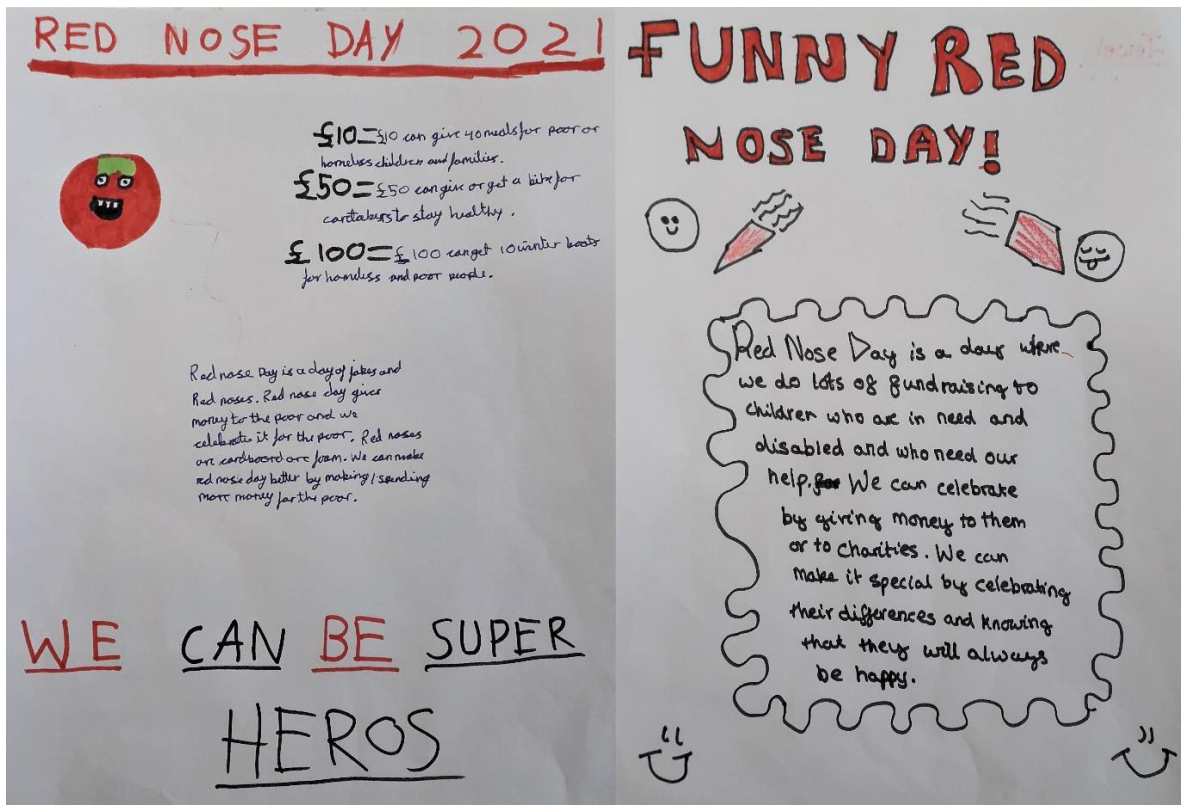 RED NOSE DAY 2021
£10=£10 can give 40 meals for poor or
homeless children and families.
£50=£50 can give or get a bike for
caretakers to stay healthy.
£100=£100 can get 10 winter boots
for homeless and poor people.
Red nose Day is a day of jokes and
Red noses. Red nose day gives
money to the poor and we
celebrate it for the poor. Red noses
are cardboard are foam. We can make
red nose day better by making/spending
more money for the poor.
WE CAN BE SUPER
HEROS
FUNNY RED
NOSE DAY!
Red Nose Day is a day where
we do lots of fundraising to
children who are in need and
disabled and who need our
help. We can celebrate
by giving money to them
or to charities. We can
make it special by celebrating
their differences and knowing
that they will always
be happy.